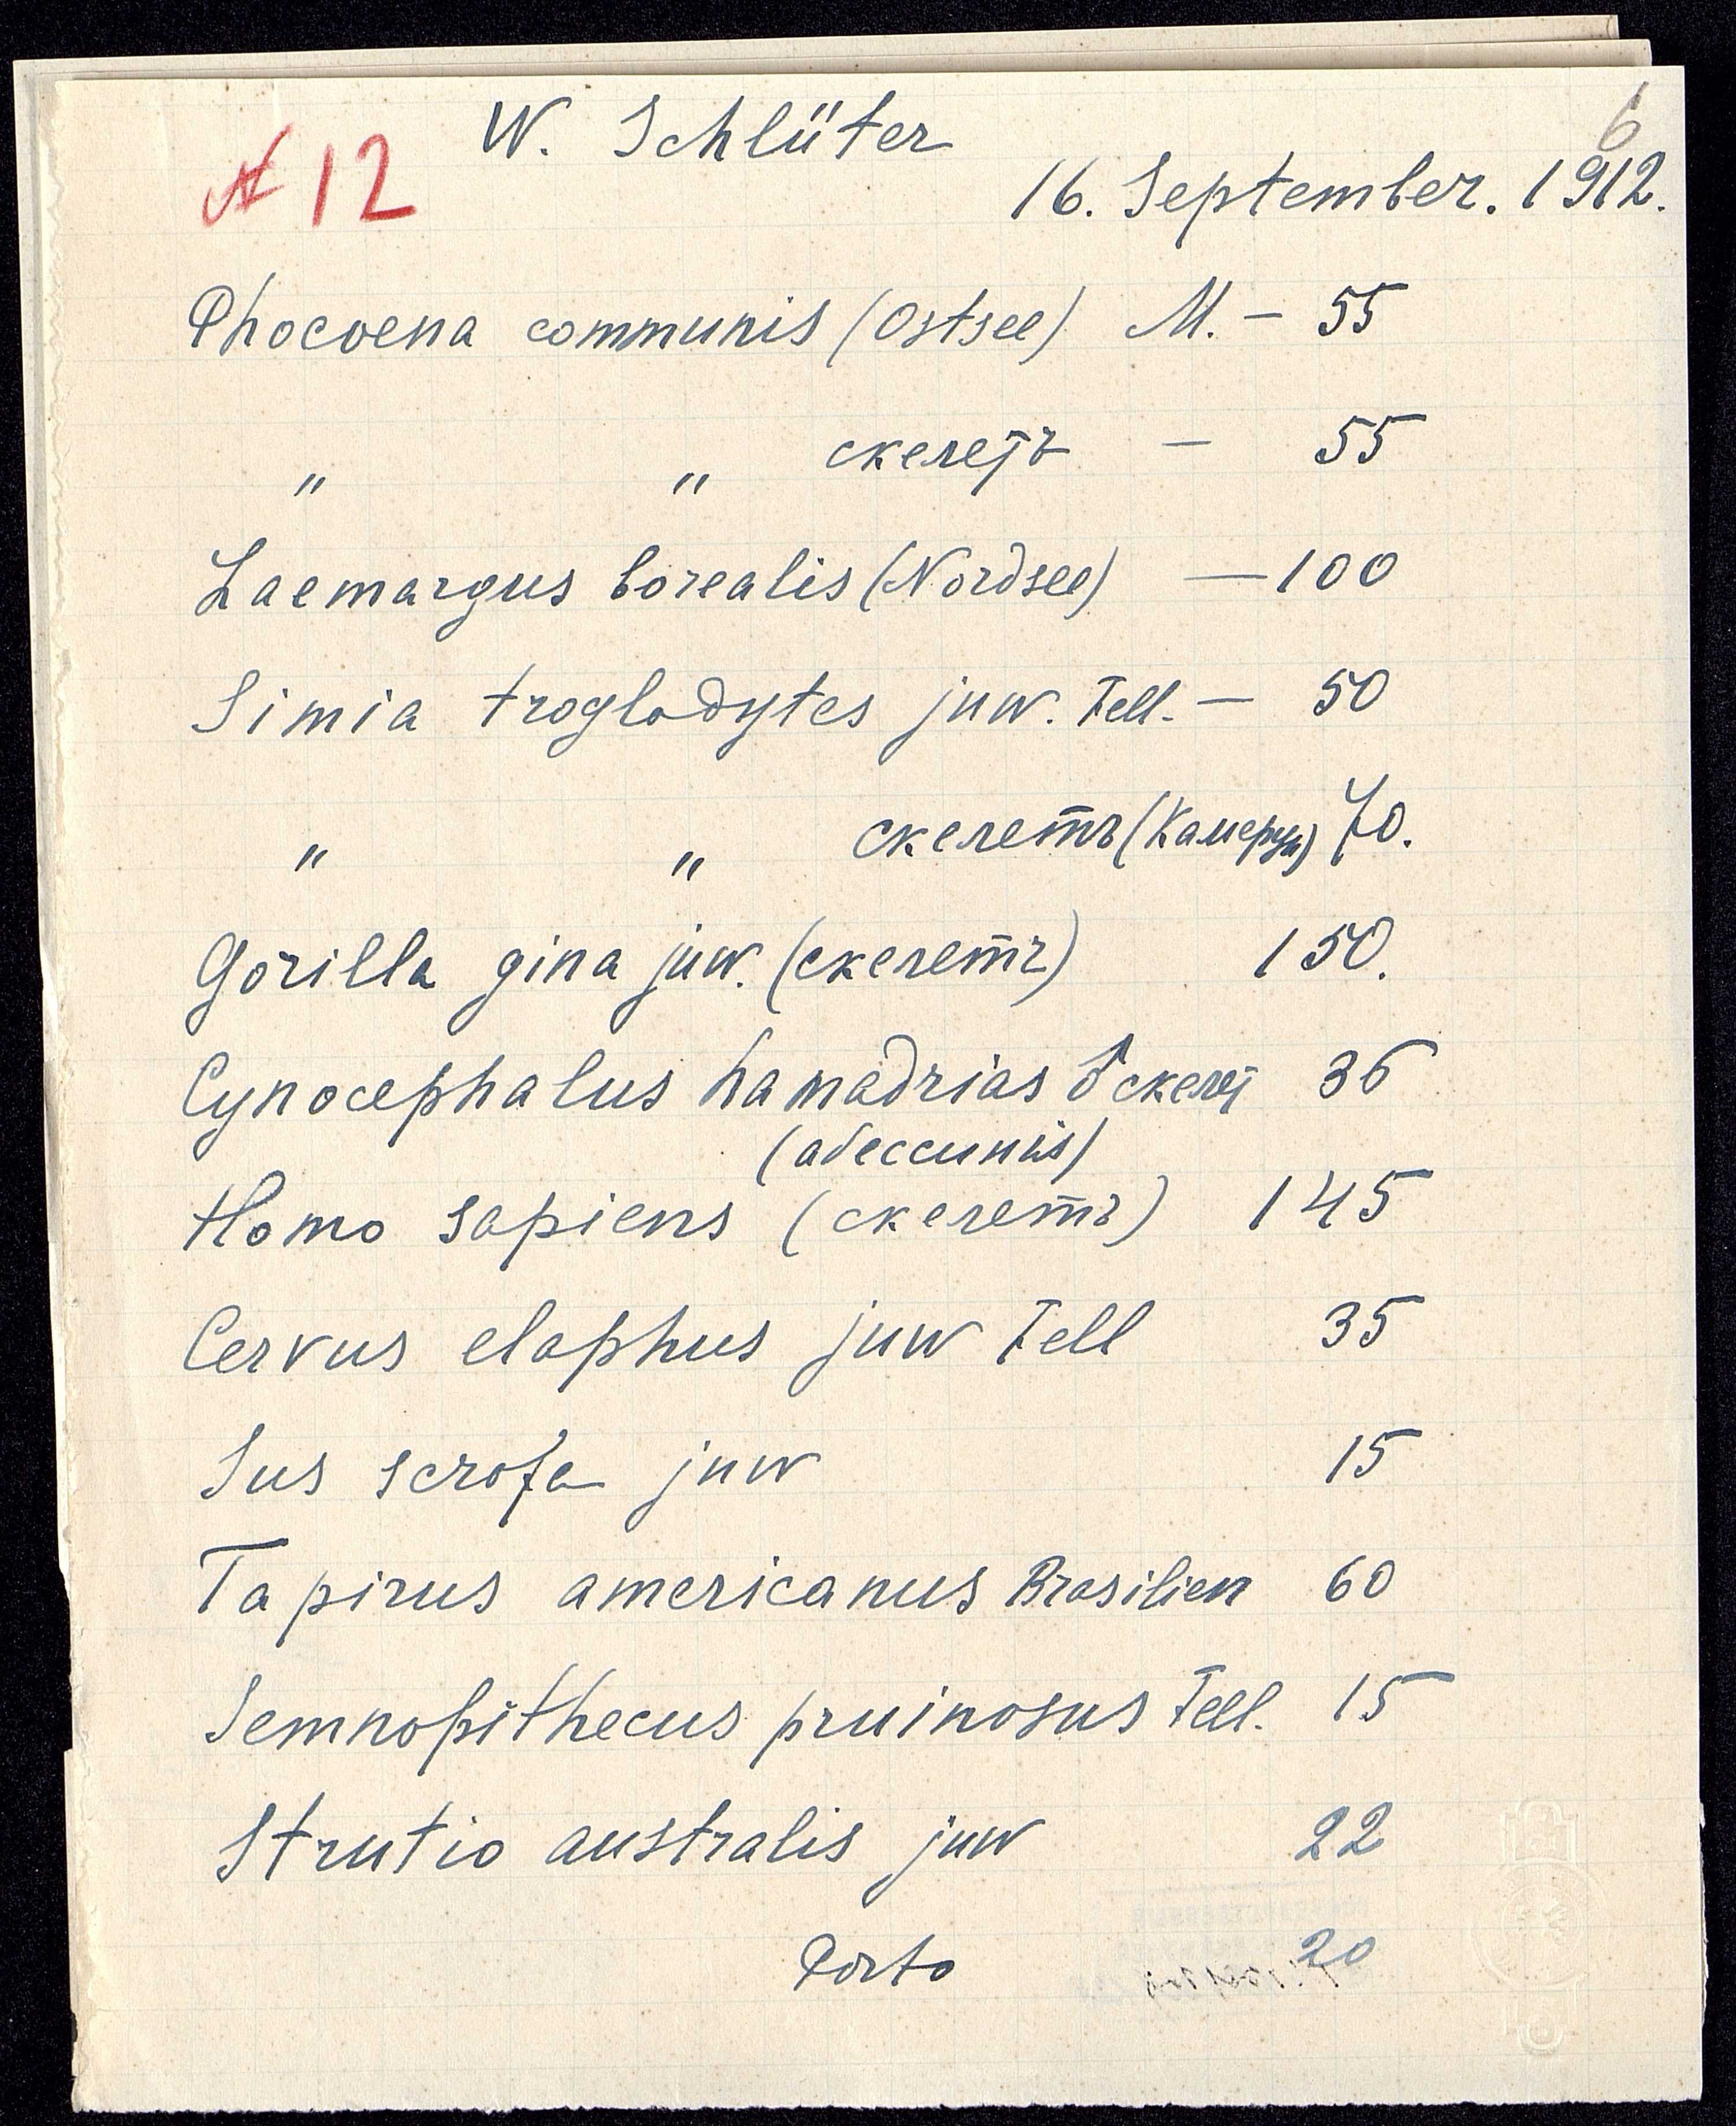 6
W. Schlüter
№ 12
16. September. 1912.
Phocoena communis (Ostsee) M. — 55
" " скелетъ — 55
Laemargus borealis (Nordsee) — 100
Simia troglodytes juw. Fell. — 50
" " скелетъ (Камерун) 70.
Gorilla gina juw. (скелетъ) 150.
Cynocephalus hamadrias ♂ скелет 36
(абессинія)
Homo sapiens (скелетъ) 145
Cervus elaphus juw Fell 35
Sus scrofa juw 15
Tapirus americanus Brasilien 60
Semnopithecus pruinosus Fell. 15
Strutio australis juw 22
Porto 20